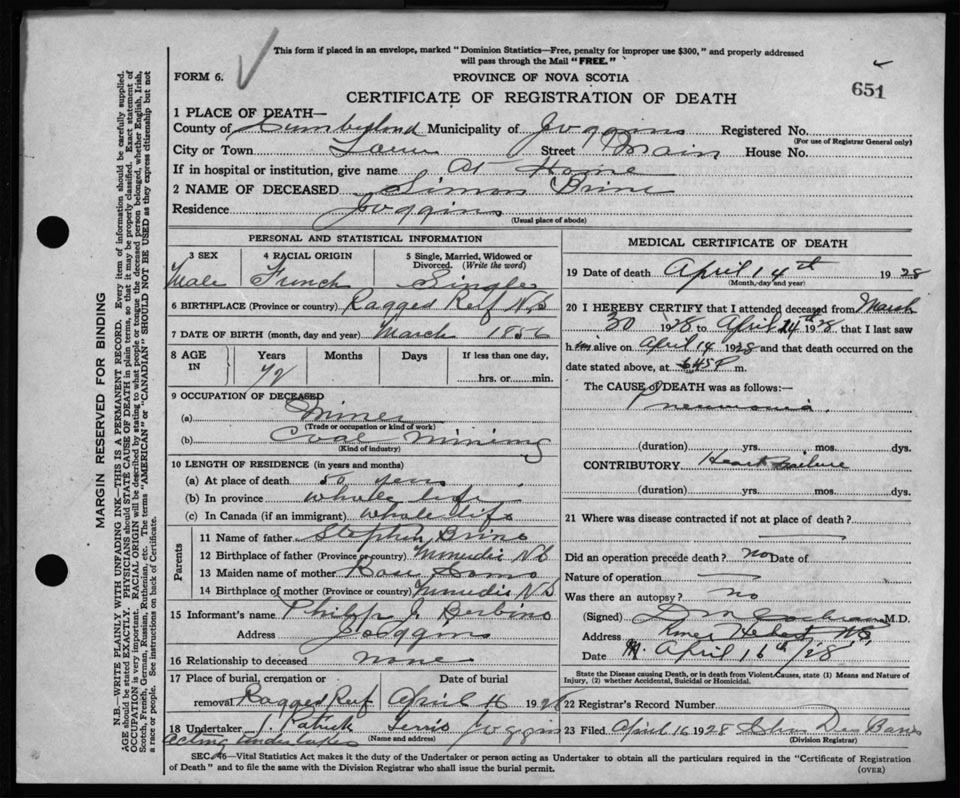 This form if placed in an envelope, marked "Dominion Statistics—Free, penalty for improper use $300," and properly addressed
will pass through the Mail "FREE."
FORM 6.
PROVINCE OF NOVA SCOTIA
651
CERTIFICATE OF REGISTRATION OF DEATH
1 PLACE OF DEATH—
County of Cumberland Municipality of Joggins Registered No.
(For use of Registrar General only)
City or Town Town Street Main House No.
If in hospital or institution, give name At Home
2 NAME OF DECEASED Simon Brine
Residence Joggins
(Usual place of abode)
PERSONAL AND STATISTICAL INFORMATION
3 SEX 4 RACIAL ORIGIN 5 Single, Married, Widowed or
Divorced. (Write the word)
Male French Single
6 BIRTHPLACE (Province or country) Ragged Reef N.S
7 DATE OF BIRTH (month, day and year) March 1856
8 AGE IN Years Months Days If less than one day,
72 hrs. or min.
9 OCCUPATION OF DECEASED
(a) Miner
(Trade or occupation or kind of work)
(b) Coal mining
(Kind of industry)
10 LENGTH OF RESIDENCE (in years and months)
(a) At place of death 50 years
(b) In province whole life
(c) In Canada (if an immigrant) whole life
Parents
11 Name of father Stephen Brine
12 Birthplace of father (Province or country) Minudie N.S
13 Maiden name of mother
14 Birthplace of mother (Province or country) Minudie N.S
15 Informant's name Philip J
Address Joggins
16 Relationship to deceased none
17 Place of burial, cremation or removal Ragged Reef
Date of burial April 16 1928
18 Undertaker Patrick Joggins
Acting undertaker (Name and address)
MEDICAL CERTIFICATE OF DEATH
19 Date of death April 14th 1928
(Month, day and year)
20 I HEREBY CERTIFY that I attended deceased from March
30 1928 to April 14th 1928 that I last saw
him alive on April 14 1928 and that death occurred on the
date stated above, at 6.45 P m.
The CAUSE of DEATH was as follows:—
Pneumonia.
(duration) yrs. mos. dys.
CONTRIBUTORY Heart Failure
(duration) yrs. mos. dys.
21 Where was disease contracted if not at place of death?
Did an operation precede death? no Date of
Nature of operation
Was there an autopsy? no
(Signed) M.D.
Address River Hebert N.S.
Date April 16th/28
State the Disease causing Death, or in death from Violent Causes, state (1) Means and Nature of
Injury, (2) whether Accidental, Suicidal or Homicidal.
22 Registrar's Record Number
23 Filed April 16 1928
(Division Registrar)
SEC. 46—Vital Statistics Act makes it the duty of the Undertaker or person acting as Undertaker to obtain all the particulars required in the "Certificate of Registration
of Death" and to file the same with the Division Registrar who shall issue the burial permit.
(OVER)
MARGIN RESERVED FOR BINDING
N.B.—WRITE PLAINLY WITH UNFADING INK—THIS IS A PERMANENT RECORD. Every item of information should be carefully supplied.
AGE should be stated EXACTLY. PHYSICIANS should STATE CAUSE OF DEATH in plain terms, so that it may be properly classified. Exact statement of
OCCUPATION is very important. RACIAL ORIGIN will be described by stating to what people or tongue the deceased person belonged, whether English, Irish,
Scotch, French, German, Russian, Ruthenian, etc. The terms "AMERICAN" or "CANADIAN" SHOULD NOT BE USED as they express citizenship but not
a race or people. See instructions on back of Certificate.